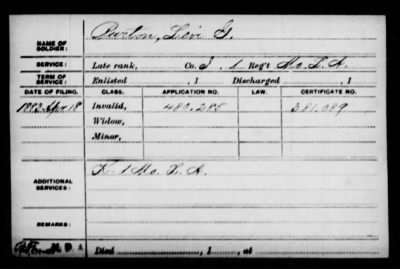 NAME OF SOLDIER: Burton, Levi G.
SERVICE: Late rank, Co. I, 1 Reg't Mo. L. A.
TERM OF SERVICE: Enlisted , 1 Discharged , 1
DATE OF FILING. CLASS. APPLICATION NO. LAW. CERTIFICATE NO.
1883 Apr 18 Invalid, 480,285 381,089
Widow,
Minor,
ADDITIONAL SERVICES: K. 1 Mo. L. A.
REMARKS:
Died , 1 , at